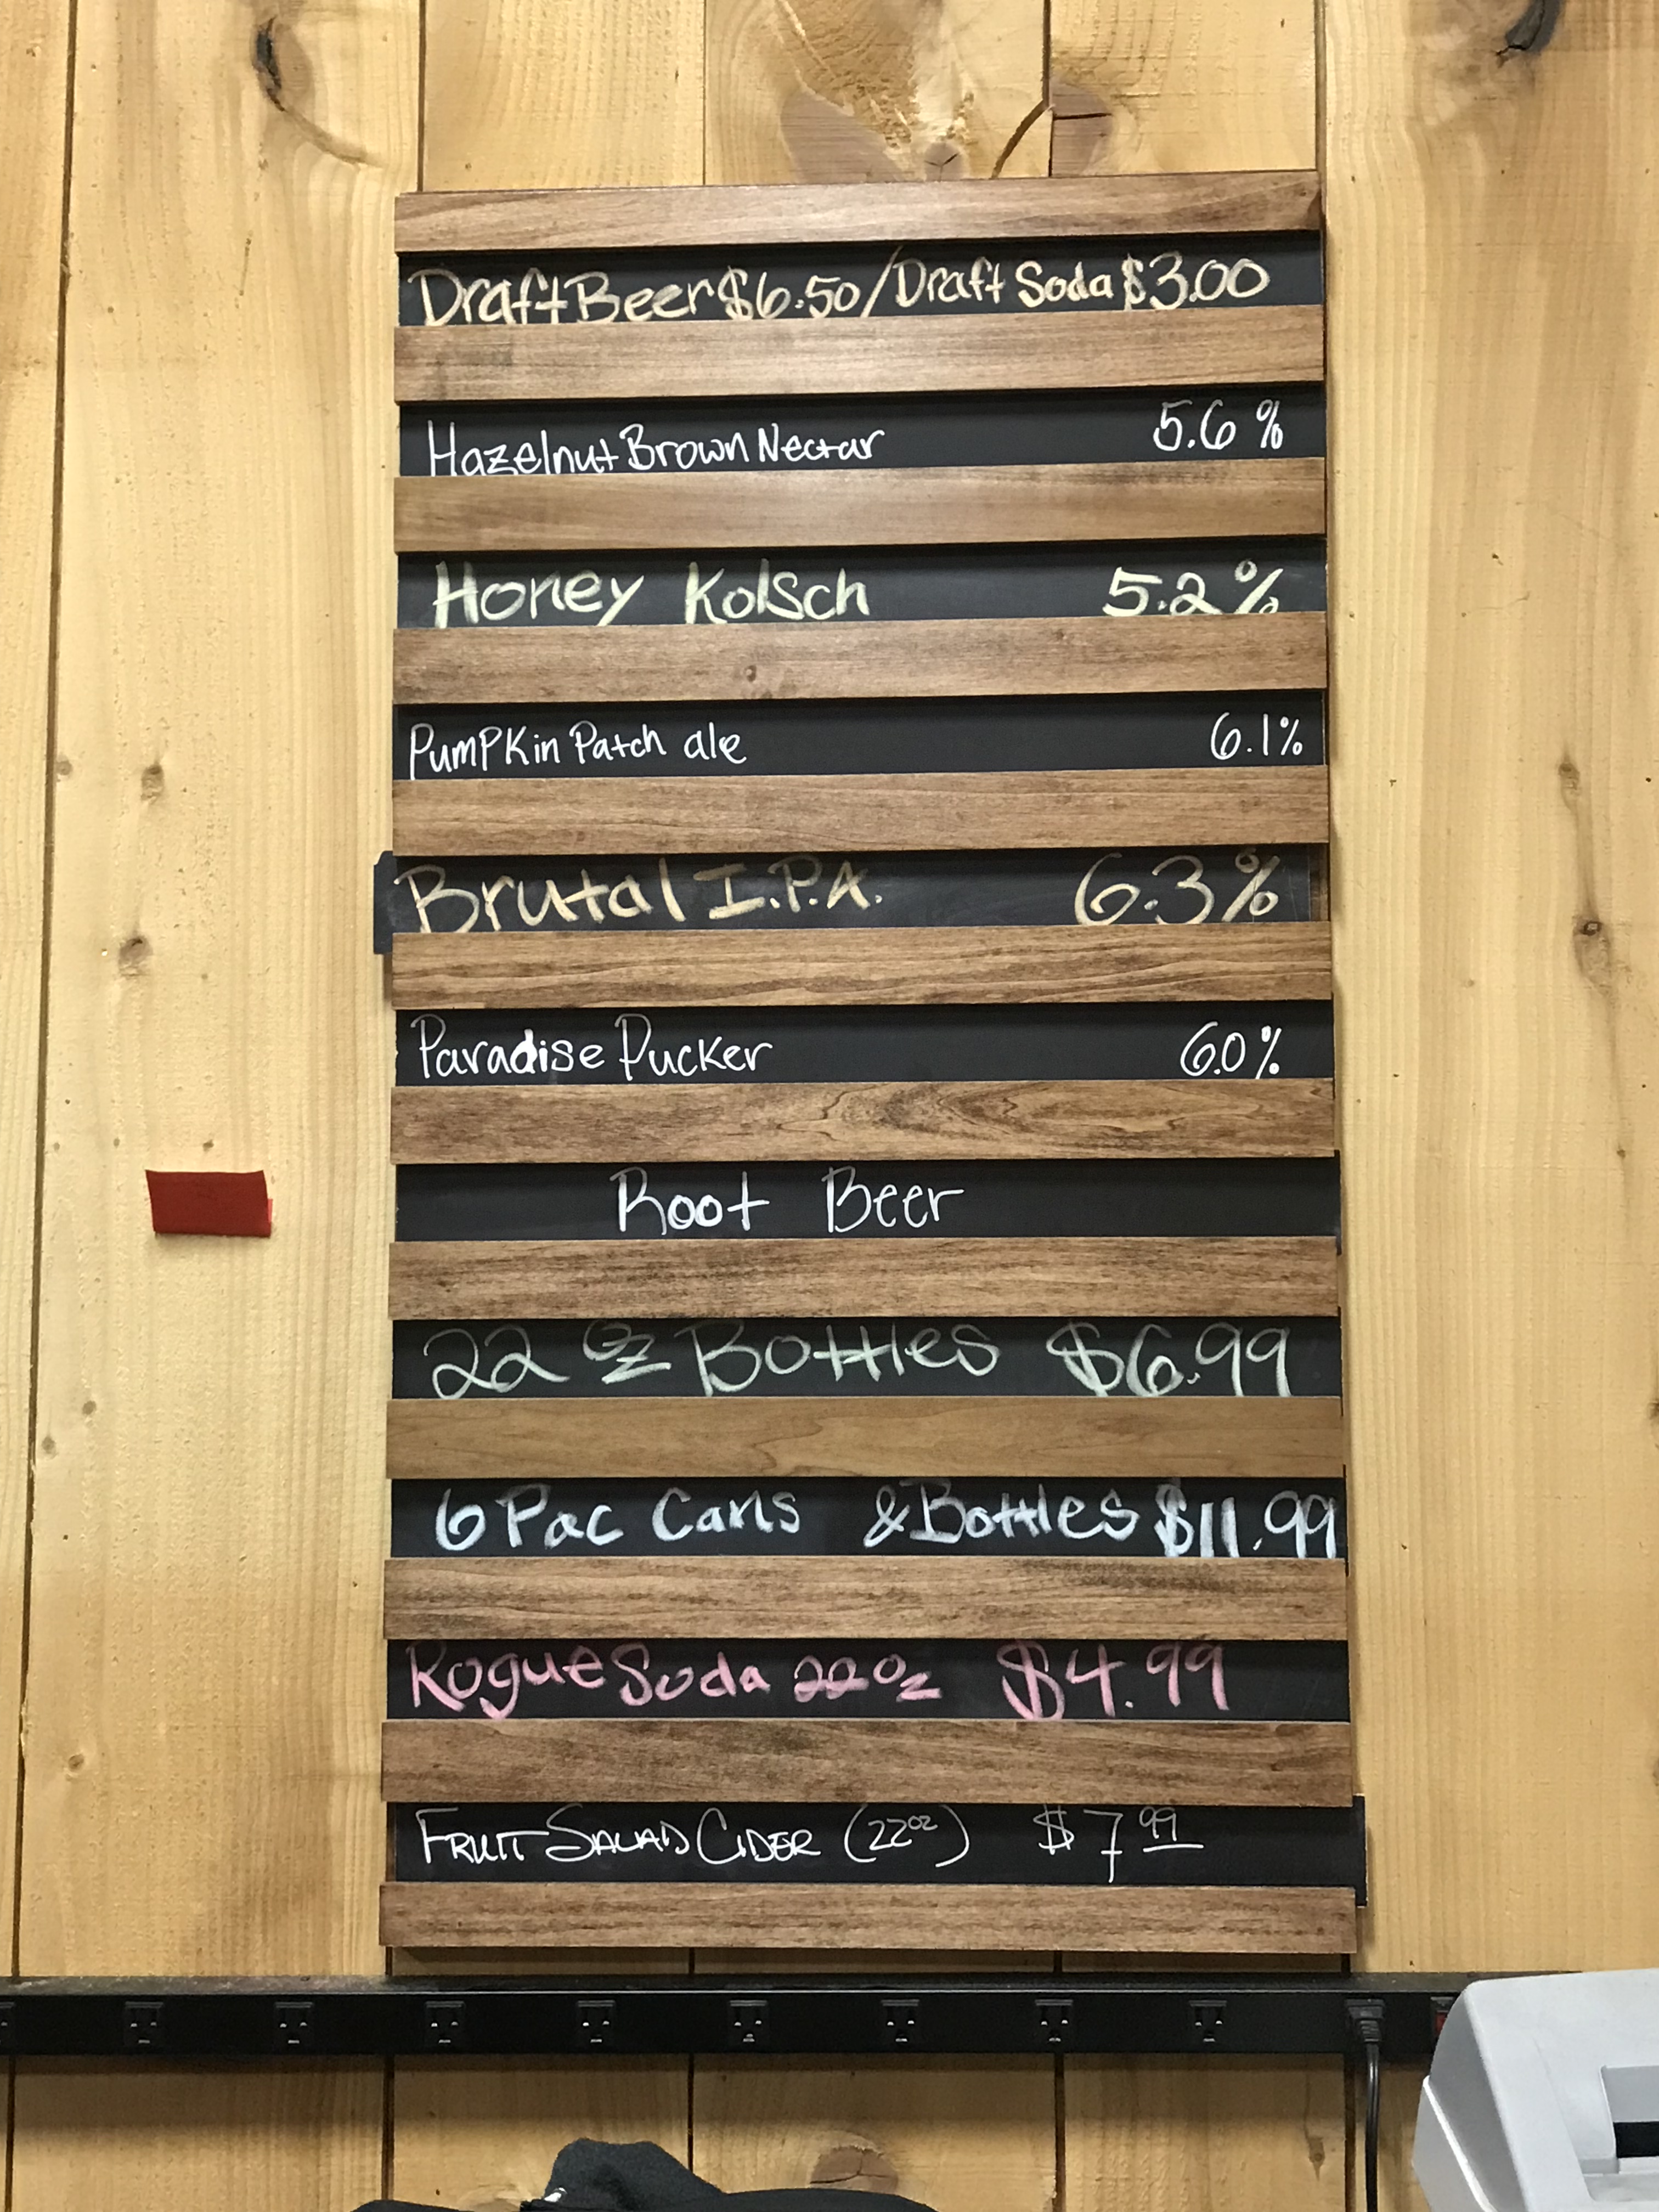 Draft Beer $6.50/Draft Soda $3.00
Hazelnut Brown Nectar 5.6%
Honey Kolsch 5.2%
PumPKin Patch ale 6.1%
Brutal I.P.A. 6.3%
Paradise Pucker 6.0%
Root Beer
22 oz Bottles $6.99
6 Pac Cans & Bottles $11.99
Rogue Soda 22oz $4.99
FRUIT SALAD CIDER (22oz) $7.99